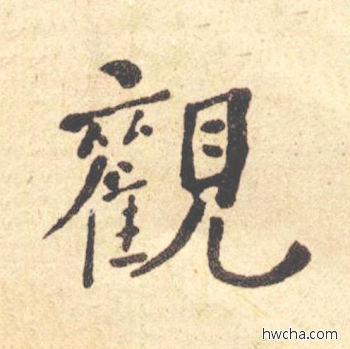 觀
hwcha.com